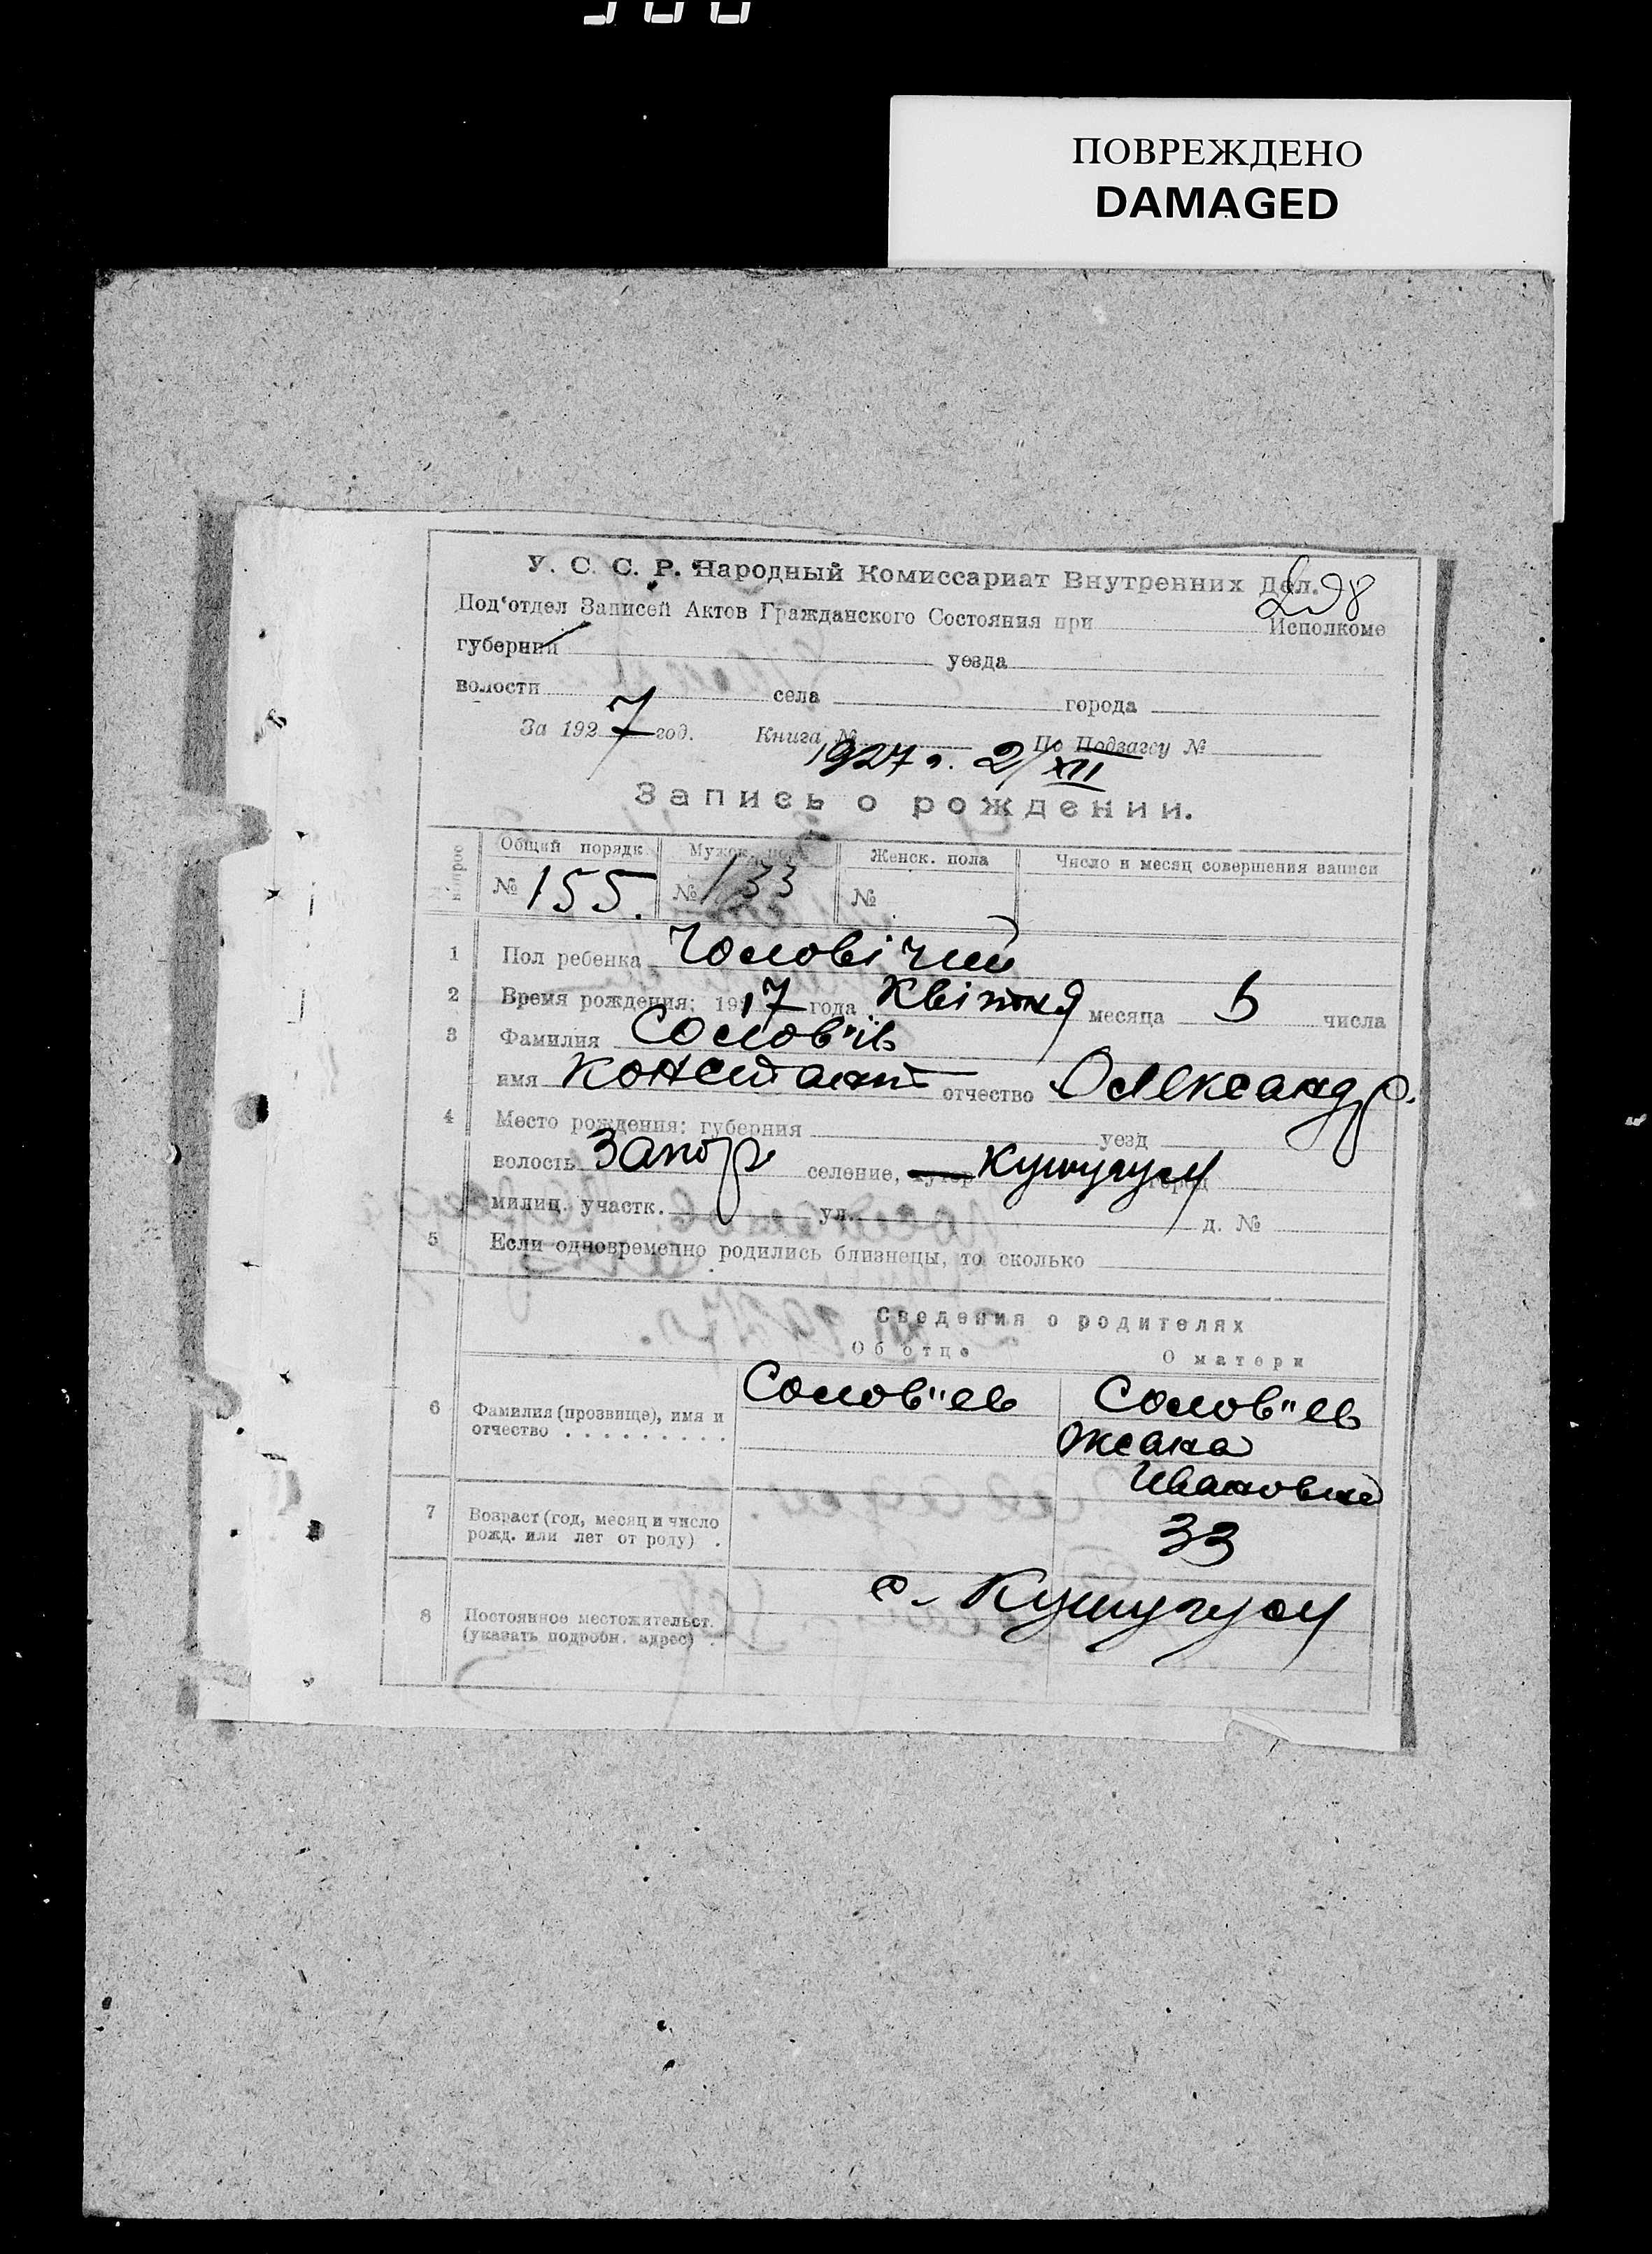 ПОВРЕЖДЕНО
DAMAGED
У. С. С. Р. Народный Комиссариат Внутренних Дел.
Под'отдел Записей Актов Гражданского Состояния при Исполкоме
губернии уезда
волости села города
За 1927 год. Книга № По Подзагсу №
1927 г. 2/XII
Запись о рождении.
Общий порядк. Мужск. пола Женск. пола Число и месяц совершения записи
№ 155. № 133 №
1 Пол ребенка Чоловічий
2 Время рождения: 1917 года Квітня месяца 5 числа
3 Фамилия Солов"їв
имя Констант отчество Олександр.
4 Место рождения: губерния уезд
волость Запор селение, хутор Кушугум город
милиц. участк. ул. д. №
5 Если одновременно родились близнецы, то сколько
Сведения о родителях
Об отце О матери
6 Фамилия (прозвище), имя и отчество Солов"ев Солов"ев
Оксана
Ивановна
7 Возраст (год, месяц и число рожд. или лет от роду) 33
8 Постоянное местожительст. (указать подробн. адрес) с. Кушугум